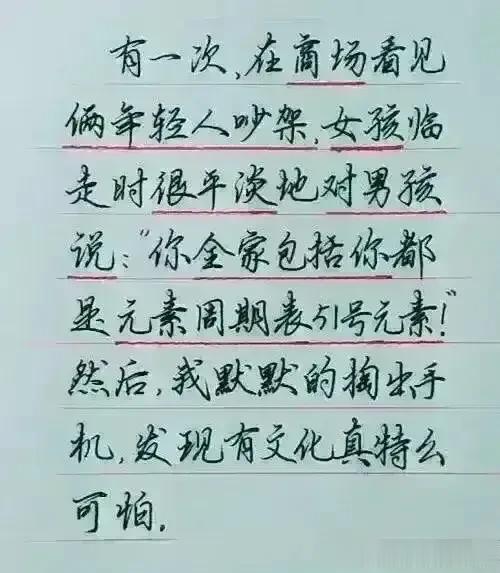 有一次，在商场看见
俩年轻人吵架，女孩临
走时很平淡地对男孩
说：“你全家包括你都
是元素周期表51号元素！”
然后，我默默的掏出手
机，发现有文化真特么
可怕．